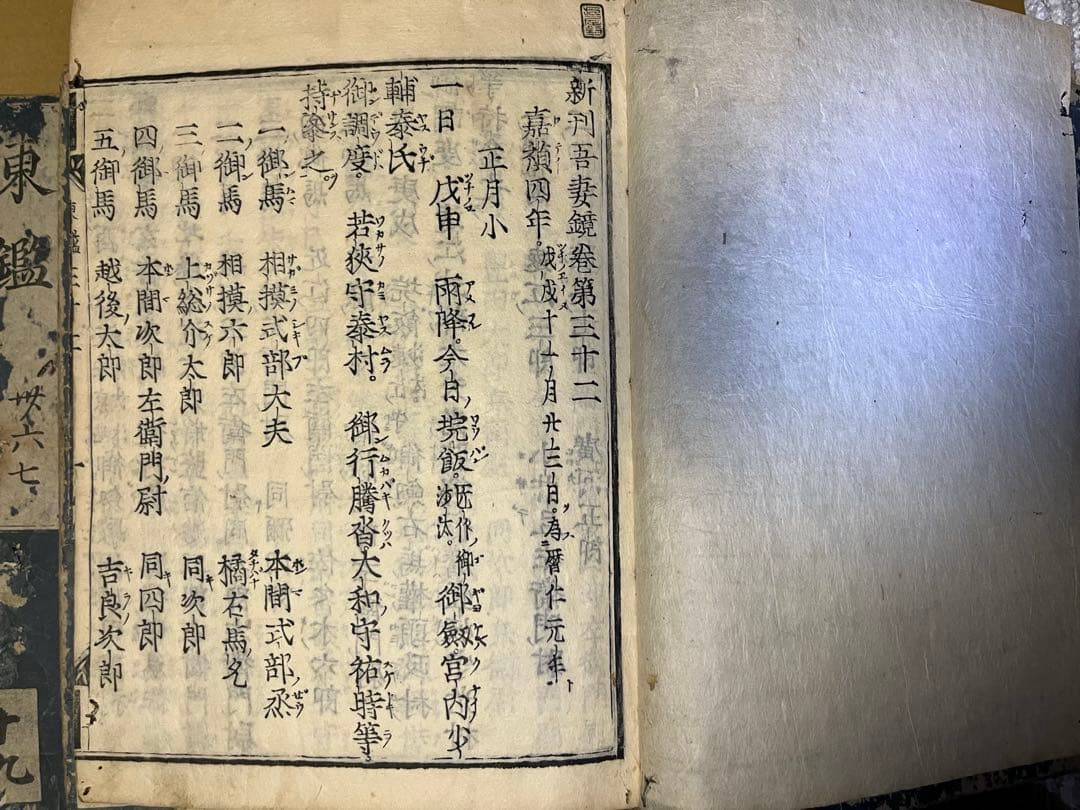 新刊吾妻鏡卷第三十二
嘉禎四年。戊戌十一月廿三日。為暦仁元年。
正月小
一日 戊申 雨降。今日垸飯。匠作御沙汰。御劔宮内少
輔泰氏
御調度。 若狹守泰村。 御行騰沓大和守祐時等
持參之。
一御馬 相摸式部大夫 本間式部烝
二御馬 相摸六郎 橘右馬允
三御馬 上総介太郎 同次郎
四御馬 本間次郎左衛門尉 同四郎
五御馬 越後太郎 吉良次郎
東鑑
卅六七
十九